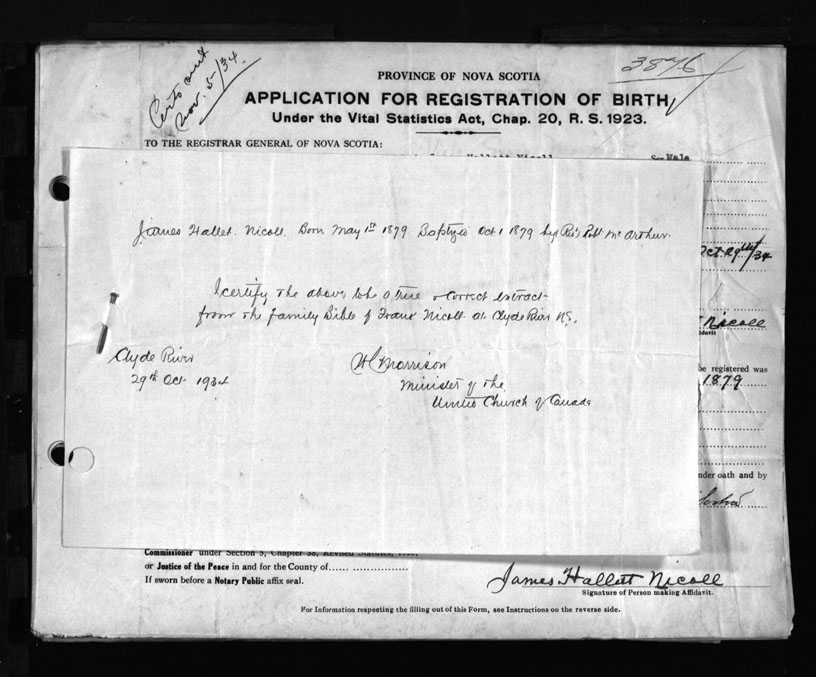 Certs out
Nov. 5/34.
3876
PROVINCE OF NOVA SCOTIA
APPLICATION FOR REGISTRATION OF BIRTH
Under the Vital Statistics Act, Chap. 20, R. S. 1923.
TO THE REGISTRAR GENERAL OF NOVA SCOTIA:
Hallett Nicoll Sex Male
James Hallet. Nicoll. Born May 1st 1879. Baptyzed Oct 1 1879 by Rev Robt McArthur.
Oct 29th/34
I certify the above to be a true & correct extract
from the family Bible of Frank Nicoll at Clyde River NS.
Nicoll
Clyde River
29th Oct 1934
Morrison
Minister of the
United Church of Canada
be registered was
1879
under oath and by
Commissioner under Section 5, Chapter 38, Revised Statutes,
or Justice of the Peace in and for the County of
If sworn before a Notary Public affix seal.
James Hallett Nicoll
Signature of Person making Affidavit.
For Information respecting the filling out of this Form, see Instructions on the reverse side.